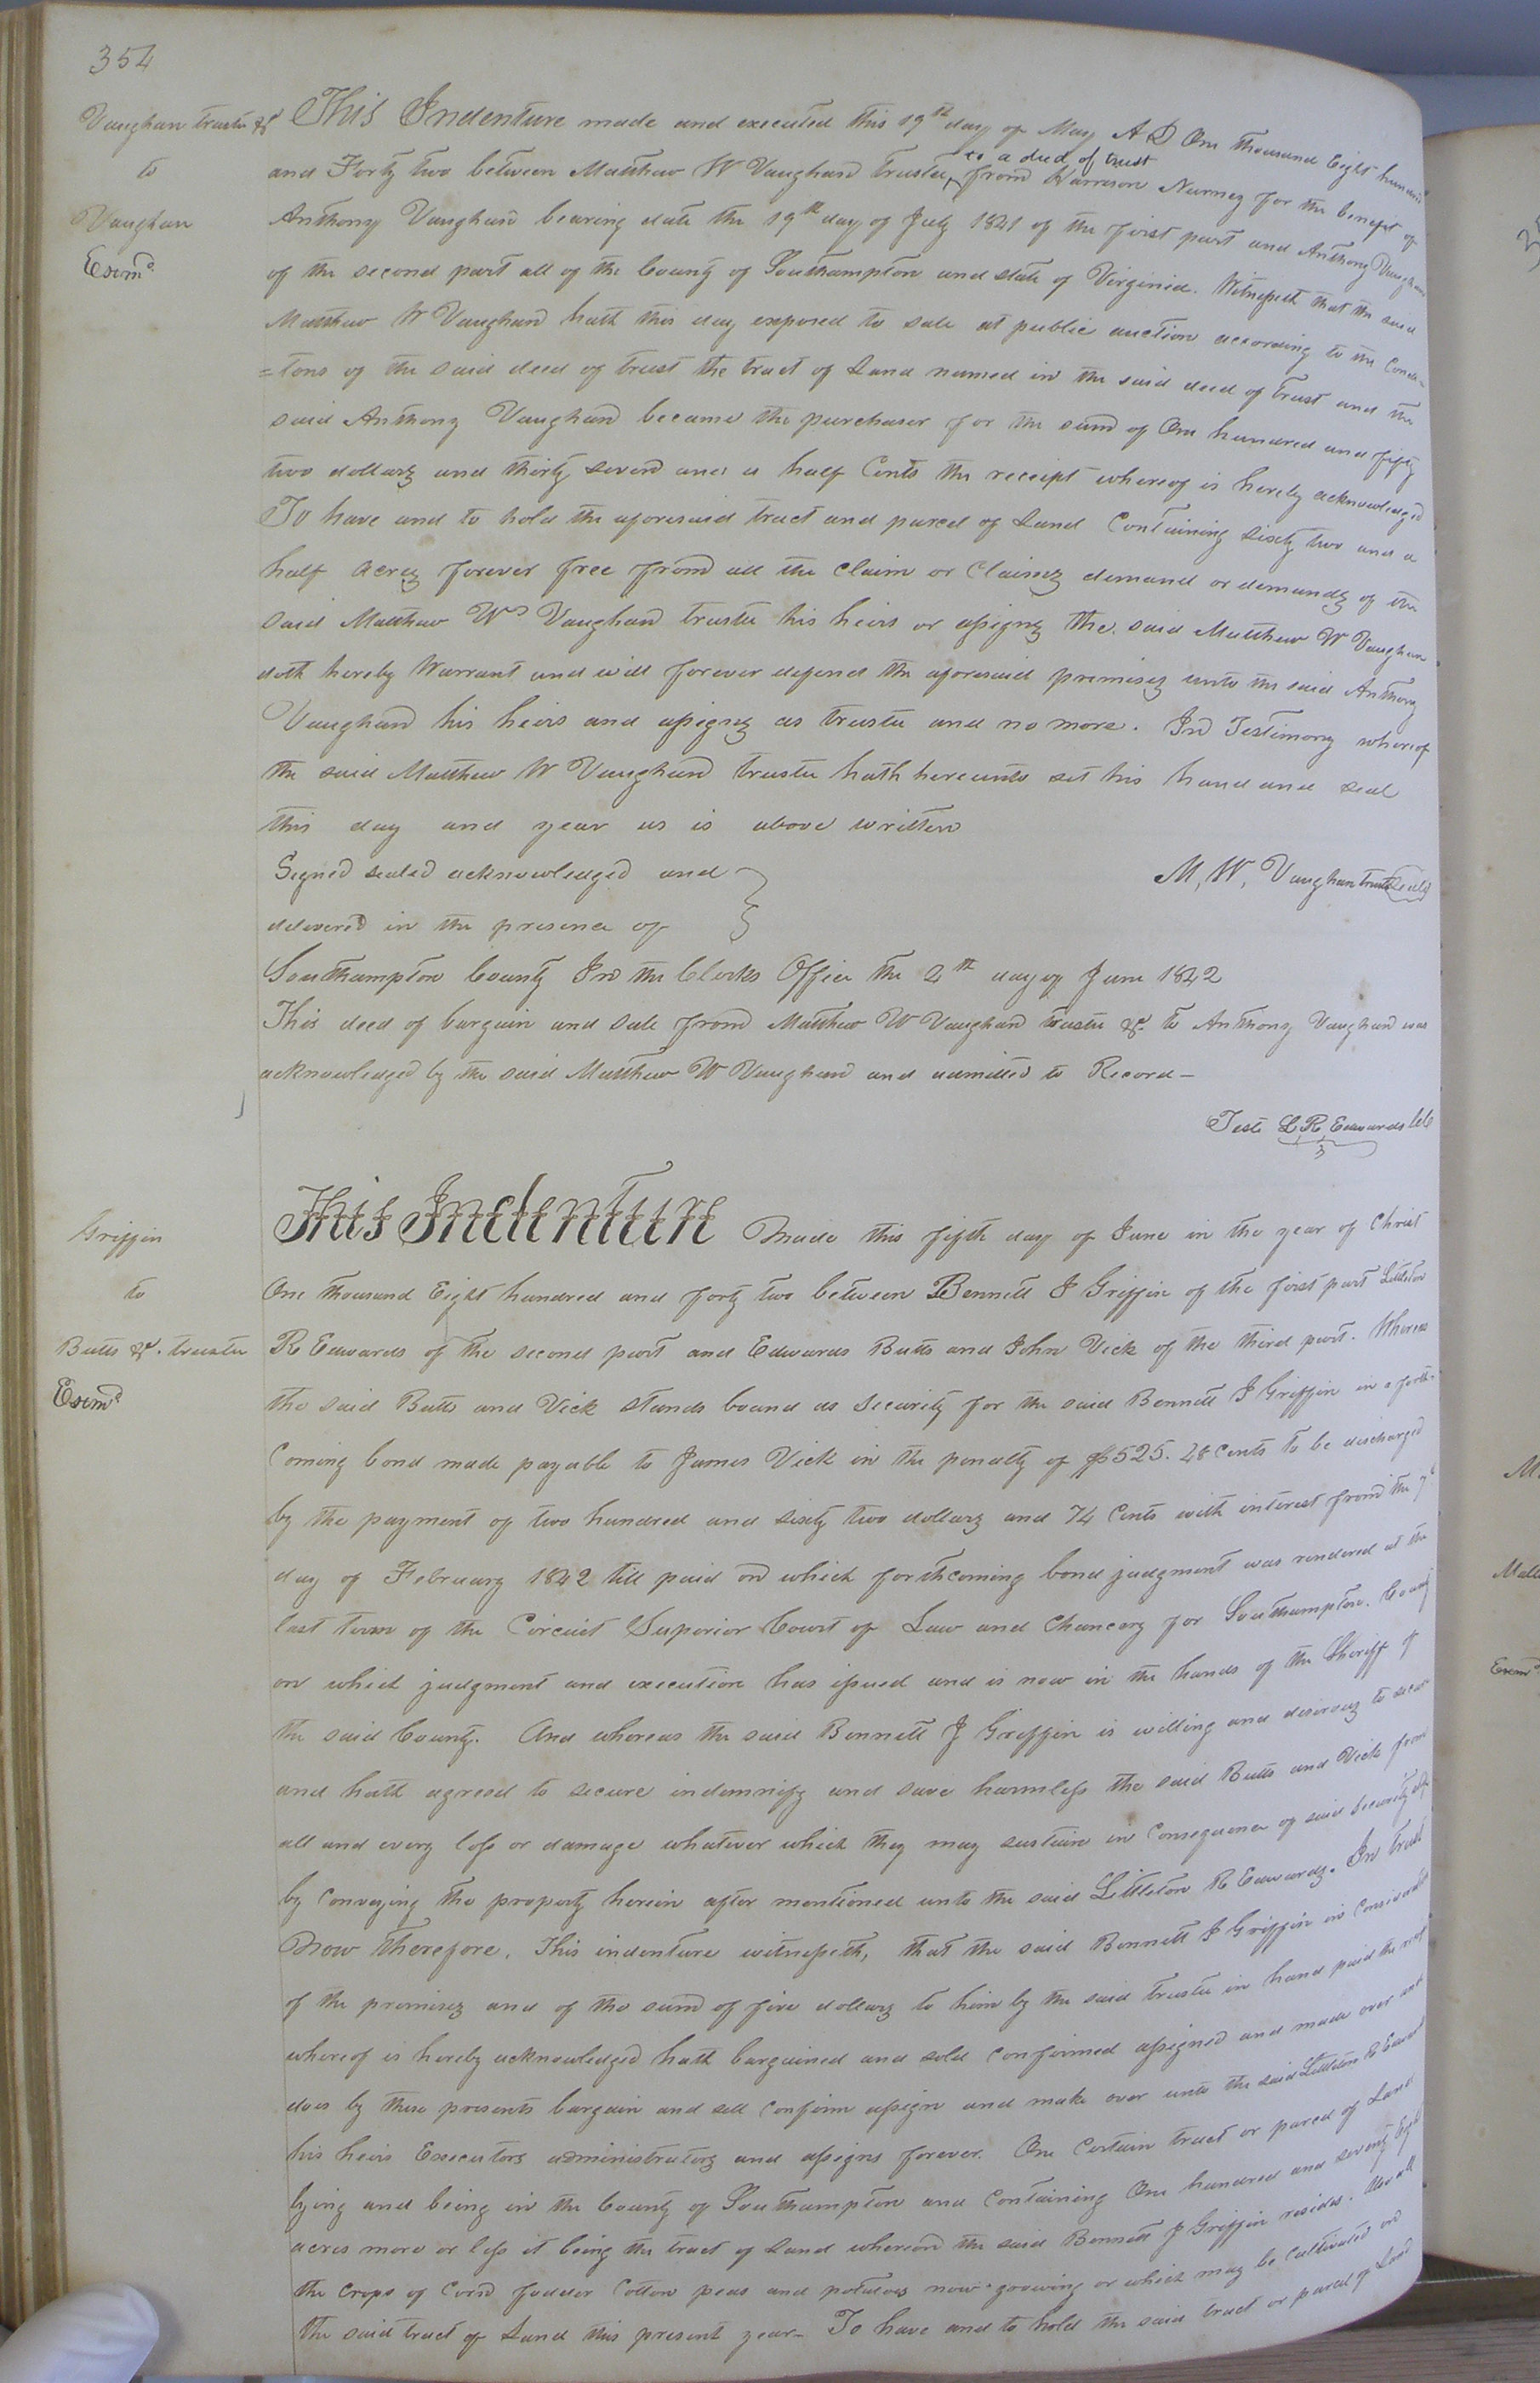 354
Vaughan trustee &c
to
Vaughan
Exmd.
This Indenture made and executed this 19th day of May A D One thousand Eight hundred
and Forty two between Matthew W Vaughan trustee, to a deed of trust from Harrison Nurney for the benefit of
Anthony Vaughan bearing date the 19th day of July 1841 of the first part and Anthony Vaughan
of the second part all of the County of Southampton and state of Virginia. Witnesseth that the said
Matthew W Vaughan hath this day exposed to sale at public auction according to the Condi=
=tons of the said deed of trust the tract of Land named in the said deed of trust and the
said Anthony Vaughan became the purchaser for the sum of One hundred and fifty
two dollars and thirty seven and a half Cents the receipt whereof is hereby acknowledged
To have and to hold the aforesaid tract and parcel of Land Containing sixty two and a
half acres forever free from all the Claim or Claims demand or demands of the
said Matthew W Vaughan trustee his heirs or assigns the said Matthew W Vaughan
doth hereby Warrant and will forever defend the aforesaid premises unto the said Anthony
Vaughan his heirs and assigns as trustee and no more. In Testimony whereof
the said Matthew W Vaughan trustee hath hereunto set his hand and seal
this day and year as is above written
Signed sealed acknowledged and
M, W, Vaughan trustee Seal
delivered in the presence of
Southampton County In the Clerks Office the 2th day of June 1842
This deed of bargain and sale from Matthew W Vaughan trustee &c. to Anthony Vaughan was
acknowledged by the said Matthew W Vaughan and admitted to Record-
Teste L R Edwards Clk
Griffin
to
Butts &c. trustee
Exmd
This Indenture Made this fifth day of June in the year of Christ
One thousand Eight hundred and forty two between Bennett J Griffin of the first part Littleton
R Edwards of the second part and Edwards Butts and John Vick of the third part. Whereas
the said Butts and Vick stands bound as Security for the said Bennett J Griffin in a forth-
coming bond made payable to James Vick in the penalty of $525.48 Cents to be discharged
by the payment of two hundred and sixty two dollars and 74 Cents with interest from the 7
day of February 1842 till paid on which forthcoming bond judgment was rendered at the
last term of the Circuit Superior Court of Law and Chancery for Southampton County
on which judgment and execution has issued and is now in the hands of the Sheriff of
the said County. And whereas the said Bennett J Griffin is willing and desirous to secure
and hath agreed to secure indemnify and save harmless the said Butts and Vick from
all and every loss or damage whatever which they may sustain in Consequence of said Security
by Conveying the property herein after mentioned unto the said Littleton R Edwards. In trust
Now Therefore, This indenture witnesseth, that the said Bennett J Griffin in Consideration
of the premises and of the sum of five dollars to him by the said trustee in hand paid the
whereof is hereby acknowledged hath bargained and sold Confirmed assigned and made over and
does by these presents bargain and sell Confirm assign and make over unto the said Littleton R Edwards
his heirs Executors administrators and assigns forever. One Certain tract or parcel of Land
lying and being in the County of Southampton and Containing One hundred and seventy Eight
acres more or less it being the tract of Land whereon the said Bennett J Griffin resides. Also all
the crops of Corn fodder Cotton peas and potatoes now growing or which may be Cultivated on
the said tract of Land this present year- To have and to hold the said tract or parcel of Land